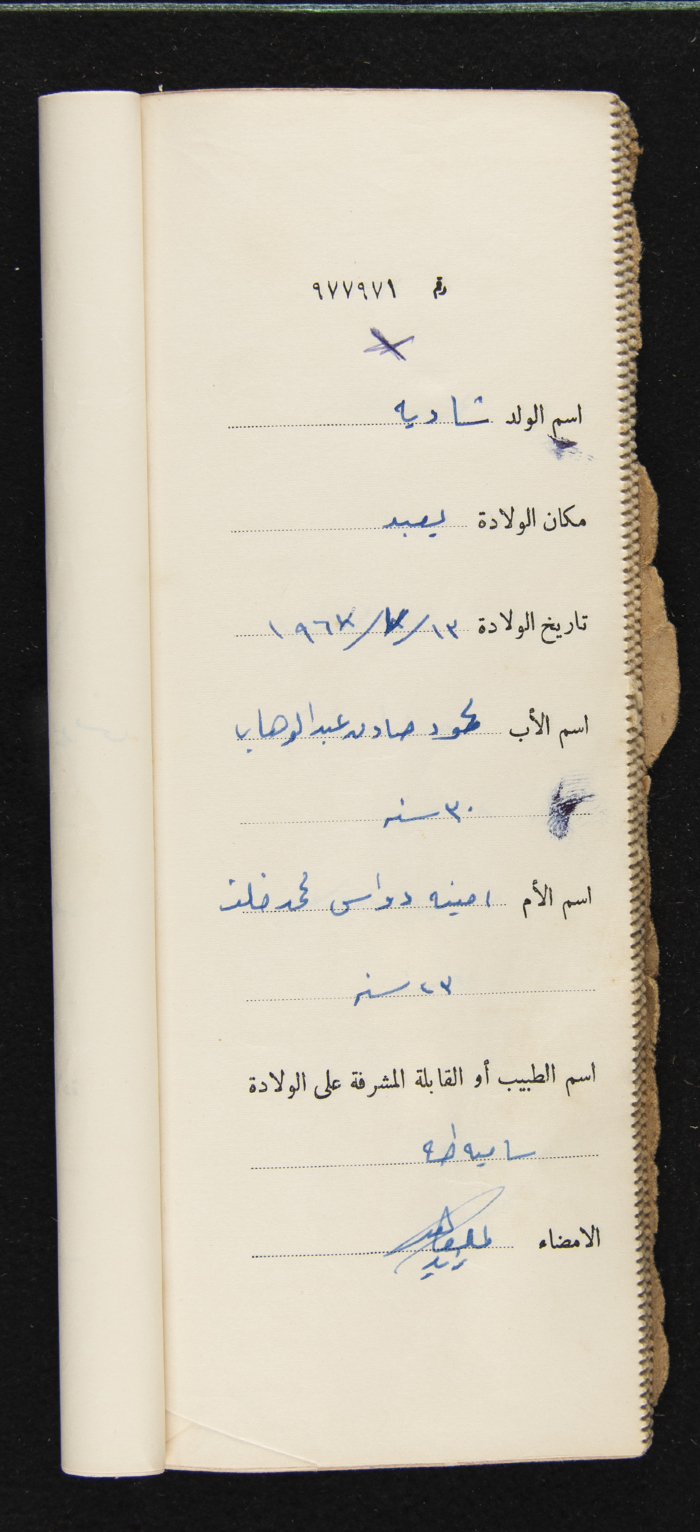 رقم ٩٧٧٩٧١
اسم الولد شاديه
مكان الولادة يعبد
تاريخ الولادة ١٣/٧/١٩٦٧
اسم الأب محمود صادق عبد الوهاب
٣٠ سنه
اسم الأم امينه دواس محمد خلف
٢٣ سنه
اسم الطبيب أو القابلة المشرفة على الولادة
ساميه طه
الامضاء